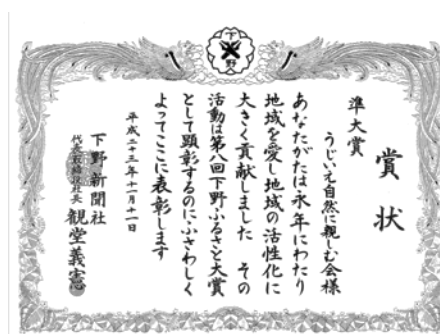 下野
賞状
準大賞
うじいえ自然に親しむ会様
あなたがたは永年にわたり
地域を愛し地域の活性化に
大きく貢献しました その
活動は第八回下野ふるさと大賞
として顕彰するのにふさわしく
よってここに表彰します
平成二十三年十一月十一日
下野新聞社
代表取締役社長 観堂義憲